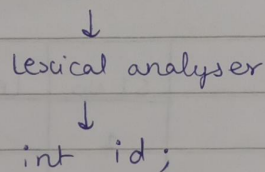 ↓
Lexical analyser
↓
int id;